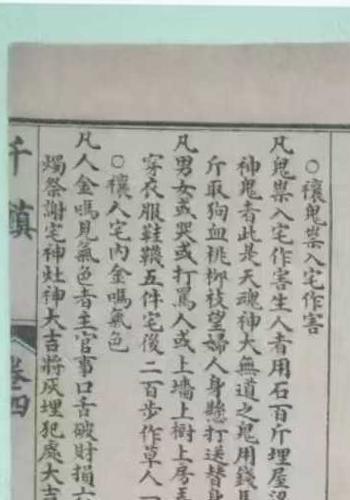 ○禳鬼祟入宅作害
凡鬼祟入宅作害生人者用石百斤埋屋
神鬼者此是天魂神大無道之鬼用錢馬
斤取狗血桃柳枝望婦人身懸打送替身
凡男女或哭或打罵人或上墻上樹上房弄
穿衣服鞋韈五件宅後二百步作草人一
○禳人宅內金鳴氣色
凡人金鳴見氣色者主官事口舌破財損六
燭祭謝宅神灶神大吉將灰埋犯處大吉
千鎮
卷四